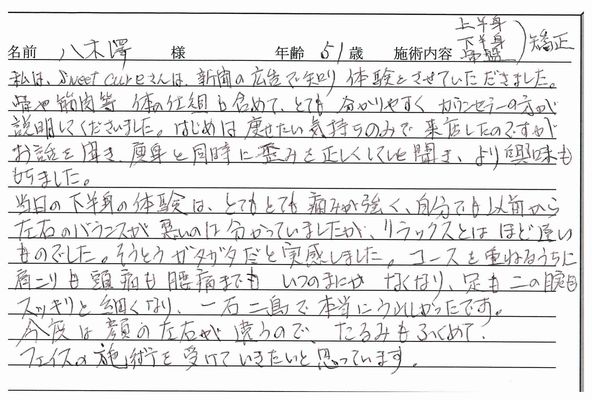 名前 八木澤 様 年齢 51歳 施術内容 上半身 下半身 骨盤 矯正
私は、Sweet cureさんは、新聞の広告で知り 体験とさせていただきました。
骨や筋肉等 体の仕組も含めて、とても 分かりやすく カウンセラーの方が
説明してくださいました。はじめは痩せたい気持ちのみで来店したのですが
お話を聞き、痩身と同時に歪みを正しくしていくと聞き、より興味も
もちました。
当日の下半身の体験は、とてもとても痛みが強く、自分でも以前から
左右のバランスが悪いのは分かっていましたが、リラックスとは ほど遠い
ものでした。そうとうガタガタだと実感しました。コースを重ねるうちに
肩こりも頭痛も腰痛までも いつのまにか なくなり、足も二の腕も
スッキリと細くなり、一石二鳥で本当にうれしかったです。
今度は顔の左右が違うので、たるみもふくめて、
フェイスの施術を受けていきたいと思っています。